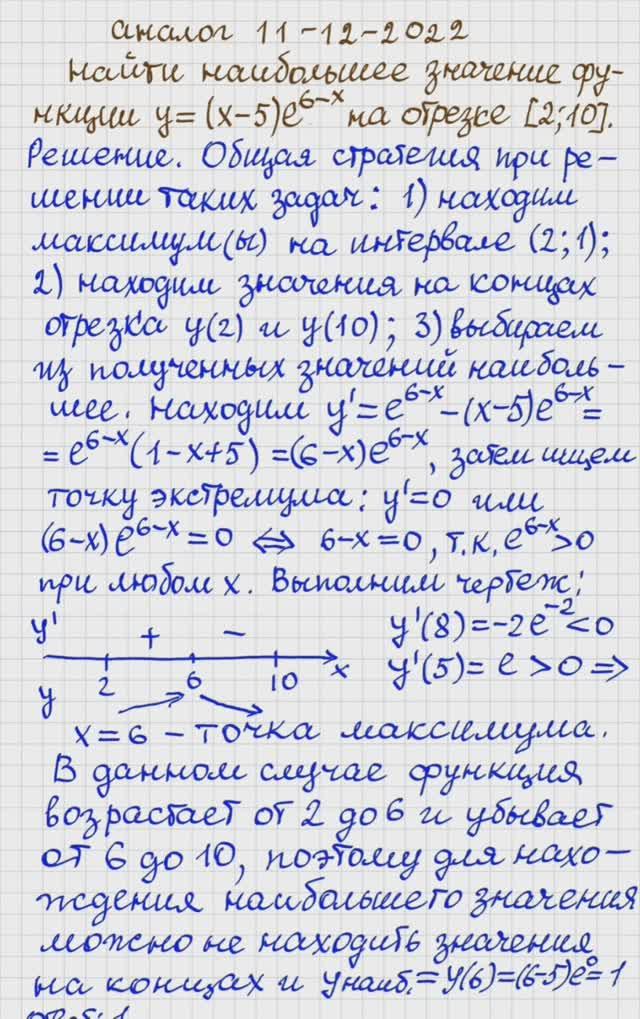 аналог 11-12-2022
Найти наибольшее значение фу-
нкции y=(x-5)e^{6-x} на отрезке [2;10].
Решение. Общая стратегия при ре-
шении таких задач: 1) находим
максимум(ы) на интервале (2;1);
2) находим значения на концах
отрезка y(2) и y(10); 3) выбираем
из полученных значений наиболь-
шее. Находим y'=e^{6-x}-(x-5)e^{6-x}=
=e^{6-x}(1-x+5)=(6-x)e^{6-x}, затем ищем
точку экстремума: y'=0 или
(6-x)e^{6-x}=0 ⇔ 6-x=0, т.к. e^{6-x}>0
при любом x. Выполним чертеж:
y' + - y'(8)=-2e^{-2}<0
y 2 6 10 x y'(5)=e>0 ⇒
x=6 - точка максимума.
В данном случае функция
возрастает от 2 до 6 и убывает
от 6 до 10, поэтому для нахо-
ждения наибольшего значения
можно не находить значения
на концах и yнаиб.=y(6)=(6-5)e^0=1